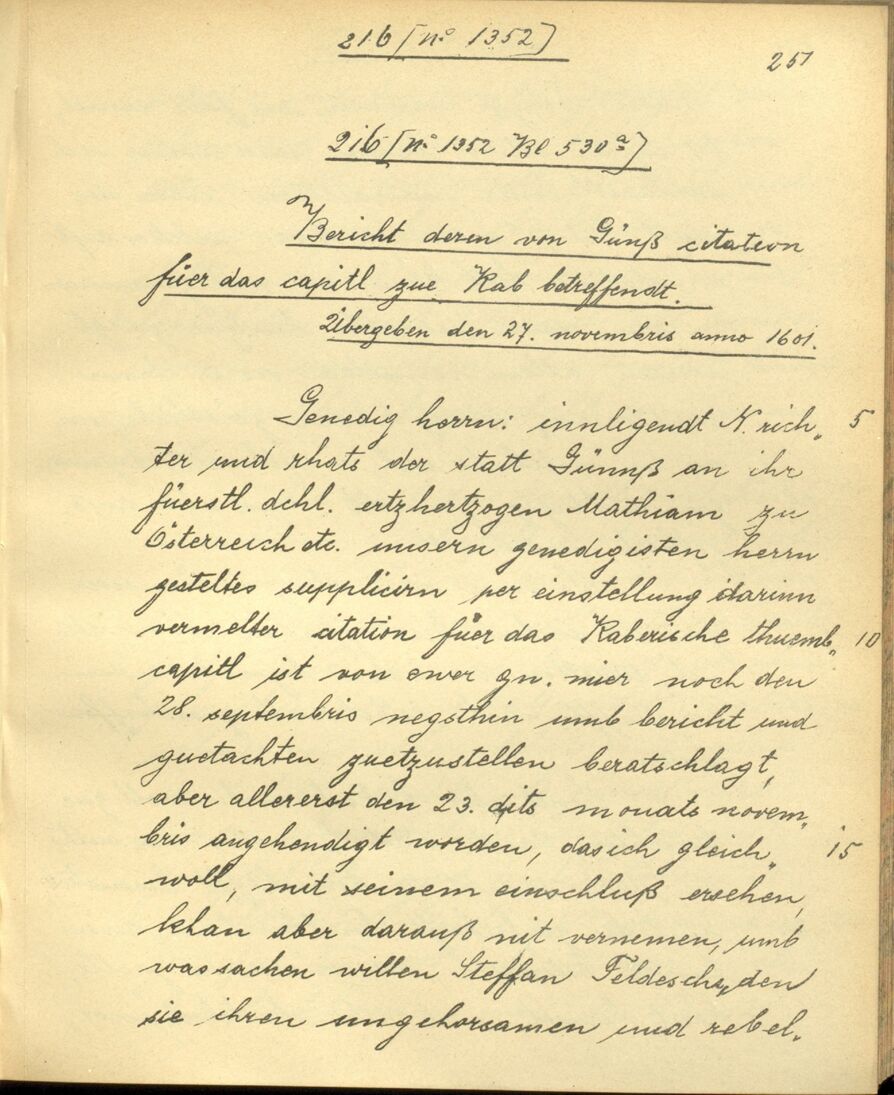 216 [No 1352]
251
216 [No 1352 Bl 530a]
Bericht deren von Günß citation
füer das capitl zue Rab betreffendt.
Übergeben den 27. novembris anno 1601.
Genedig herrn: innligendt N. rich„ 5
ter und rhats der statt Günnß an ihr
füerstl. dchl. ertzhertzogen Mathiam zu
Österreich etc. unsern genedigisten herrn
gesteltes supplicirn per einstellung darinn
vermelter citation füer das Raberische thuemb„ 10
capitl ist von ewer gn. mier noch den
28. septembris negsthin umb bericht und
guetachten zuetzustellen beratschlagt,
aber allererst den 23. dits monats novem„
bris angehendigt worden, das ich gleich„ 15
woll, mit seinem einschluß ersehen,
khan aber darauß nit vernemen, umb
was sachen willen Steffan Feldeschy, den
sie ihren ungehorsamen und rebel„